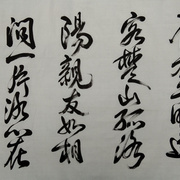 平明送
客楚山孤洛
陽親友如相
問一片冰心在